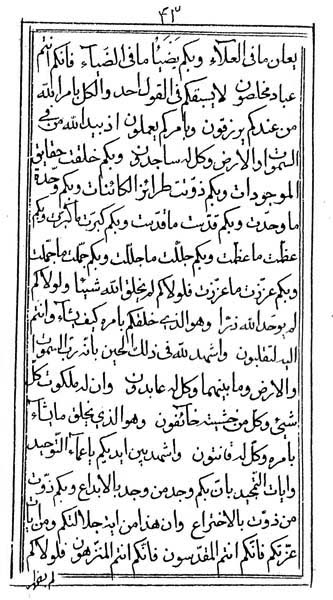 ٤٣
يعان مافى العلاء وبكم يضيا مافى الضياء فانكم انتم
عباد مخلصون لا يسبقكم فى القول احد والكل بامر الله
من عندكم يرزقون وبامركم يعملون اذ بيد الله من فى
السموات والارض وكل له ساجدون وبكم خلقت حقايق
الموجودات وبكم ذوتت طرائز الكائنات وبكم وحدة
ما وحدت وبكم قدست ما قدست وبكم كبرت ما كبرت وبكم
عظمت ما عظمت وبكم جللت ما جللت وبكم جملت ما جملت
وبكم عززت ما عززت فلولاكم لم يخلق الله شيئا ولولاكم
لم يوحد الله ذرا وهو الذى خلقكم بامره كيف يشاء وانتم
اليه لتقلبون واشهد لله فى ذلك الحين بانه رب السموات
والارض وما بينهما وكل له عابدون وان له ملكوت كل
شئ وكل من خشيته خائفون وهو الذى يخلق ما يشاء
بامره وكل له قانتون واشهد بين ايديكم باعماء التوحيد
وايات التمجيد بان بكم وجد من وجد بالابداع وبكم ذوت
من ذوت بالاختراع وان هذا من اية جلالتكم ومن
عزتكم فانكم انتم المقدسون فانكم انتم المنزهون فلولاكم
لم